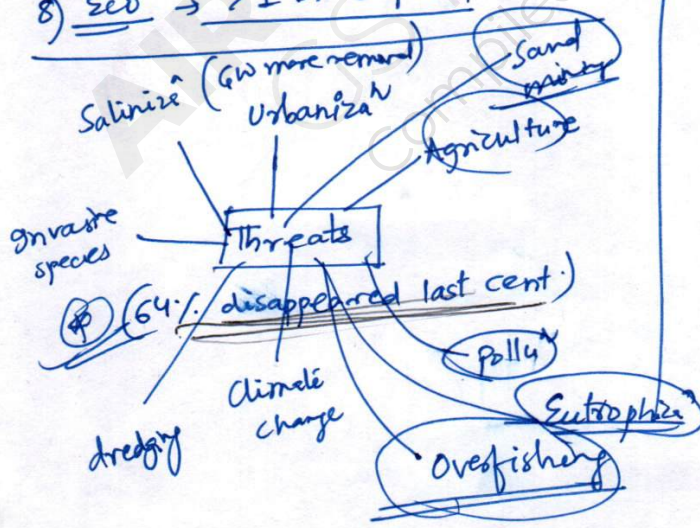 8) Eco →
Salinizaⁿ (GW more removal)
Urbanizaⁿ
Sand
mining
Agriculture
Invasive
species
Threats
(64% disappeared last cent.)
Polluⁿ
Climate
change
Eutrophizaⁿ
dredging
Overfishing